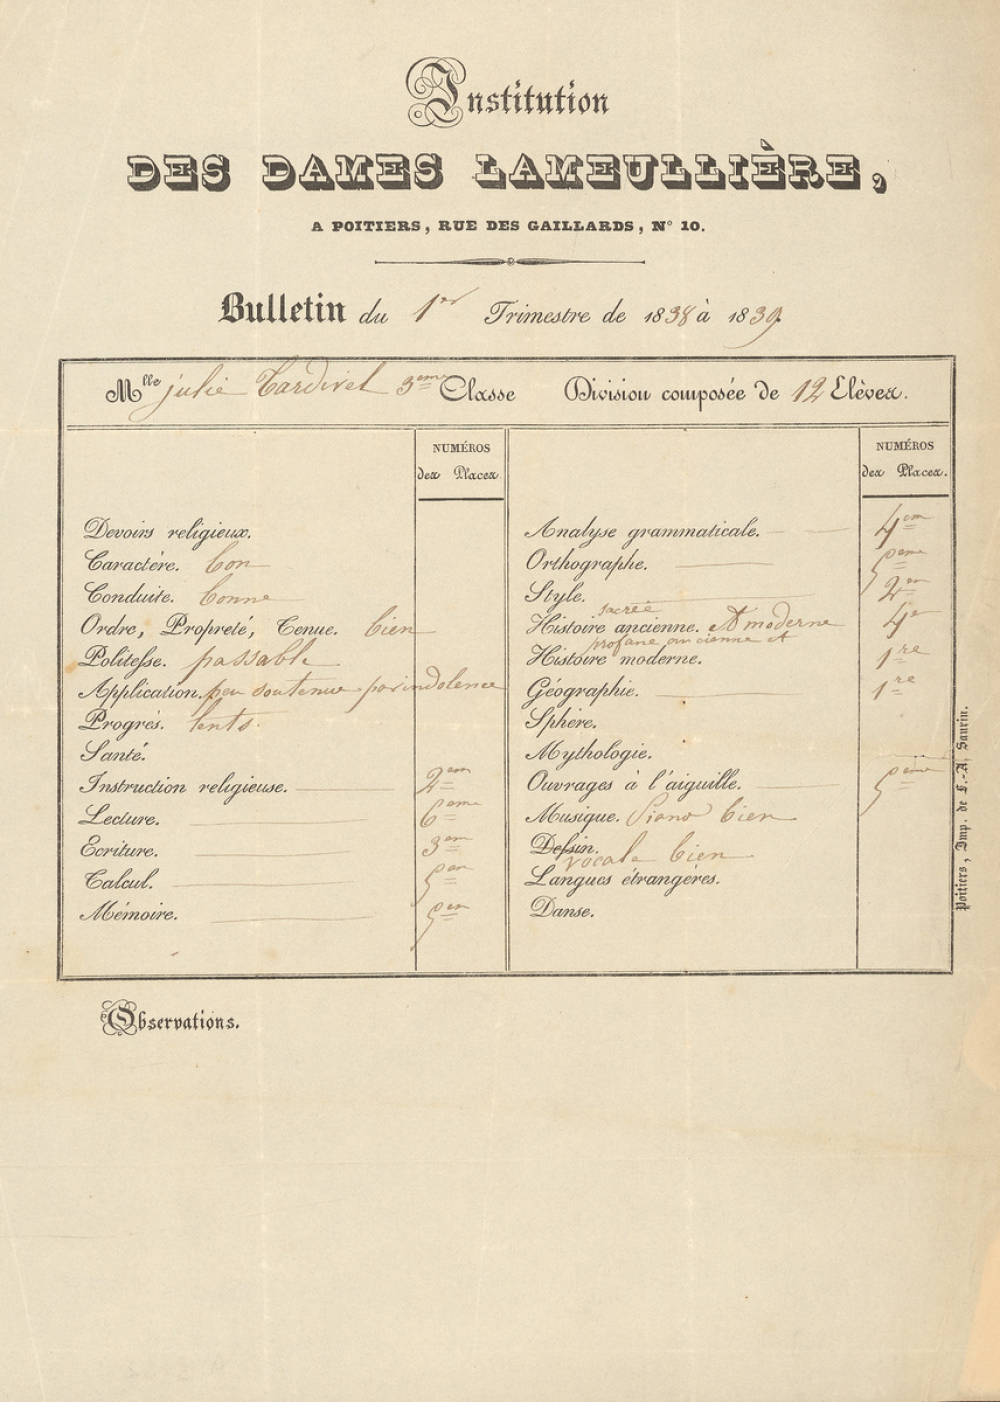 Institution
DES DAMES LAMEULLIÈRE,
A POITIERS, RUE DES GAILLARDS, N° 10.
Bulletin du 1er Trimestre de 1838 à 1839
Mlle julie Tardivel 3eme Classe Division composée de 12 Elèves.
NUMÉROS
des Places.
Devoirs religieux.
Caractère. bon
Conduite. bonne
Ordre, Propreté, Tenue. bien
Politesse. passable
Application. peu soutenue par indolence
Progrès. lents.
Santé.
Instruction religieuse. 2em
Lecture. 6eme
Ecriture. 3em
Calcul. 5em
Mémoire. 5em
NUMÉROS
des Places.
Analyse grammaticale. 4em
Orthographe. 5eme
Style. 2em
sacrée
Histoire ancienne. et moderne 4e
profane ancienne et
Histoire moderne. 1re
Géographie. 1re
Sphère.
Mythologie.
Ouvrages à l'aiguille. 5eme
Musique. Piano bien
Dessin.
vocale bien
Langues étrangères.
Danse.
Poitiers, Imp. de F.-A. Saurin.
Observations.